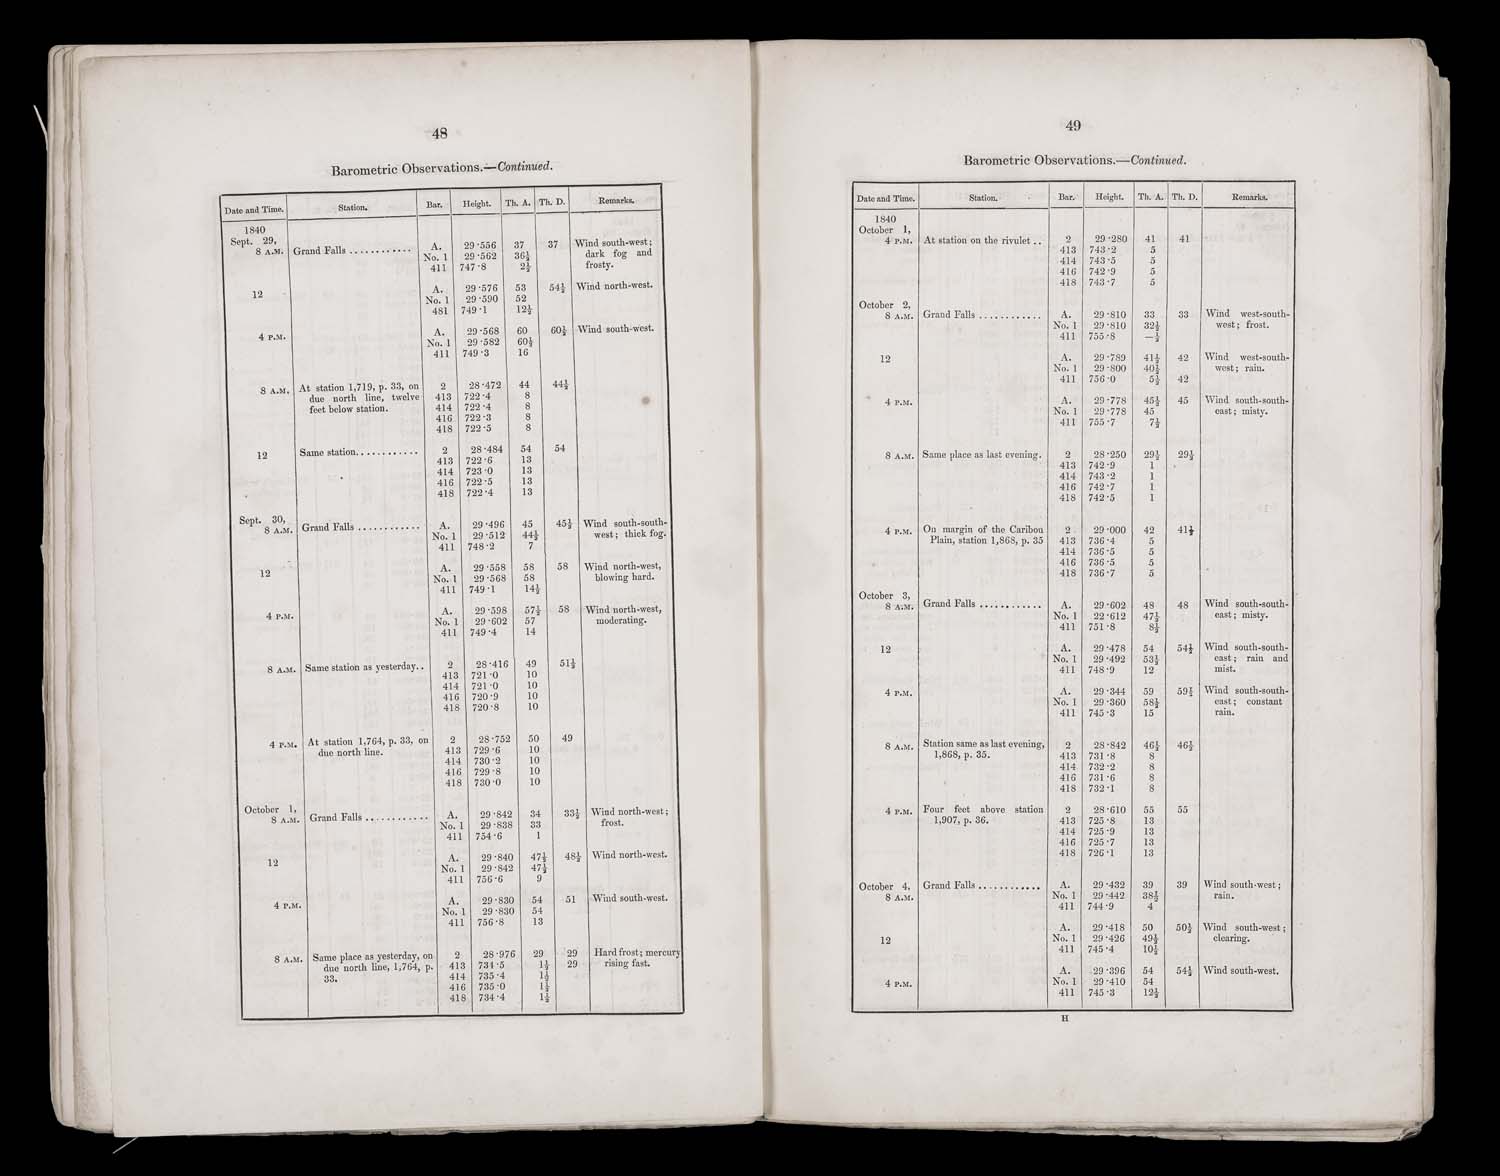 48
Barometric Observations.—Continued.
Date and Time. Station. Bar. Height. Th. A. Th. D. Remarks.
1840
Sept. 29,
8 A.M. Grand Falls ............ A. 29·556 37 37 Wind south-west;
No. 1 29·562 36½ dark fog and
411 747·8 2½ frosty.
12 A. 29·576 53 54½ Wind north-west.
No. 1 29·590 52
481 749·1 12½
4 P.M. A. 29·568 60 60½ Wind south-west.
No. 1 29·582 60½
411 749·3 16
8 A.M. At station 1,719, p. 33, on 2 28·472 44 44½
due north line, twelve 413 722·4 8
feet below station. 414 722·4 8
416 722·3 8
418 722·5 8
12 Same station............ 2 28·484 54 54
413 722·6 13
414 723·0 13
416 722·5 13
418 722·4 13
Sept. 30,
8 A.M. Grand Falls ............ A. 29·496 45 45½ Wind south-south-
No. 1 29·512 44½ west; thick fog.
411 748·2 7
12 A. 29·558 58 58 Wind north-west,
No. 1 29·568 58 blowing hard.
411 749·1 14½
4 P.M. A. 29·598 57½ 58 Wind north-west,
No. 1 29·602 57 moderating.
411 749·4 14
8 A.M. Same station as yesterday.. 2 28·416 49 51½
413 721·0 10
414 721·0 10
416 720·9 10
418 720·8 10
4 P.M. At station 1,764, p. 33, on 2 28·752 50 49
due north line. 413 729·6 10
414 730·2 10
416 729·8 10
418 730·0 10
October 1,
8 A.M. Grand Falls ............ A. 29·842 34 33½ Wind north-west;
No. 1 29·838 33 frost.
411 754·6 1
12 A. 29·840 47½ 48½ Wind north-west.
No. 1 29·842 47½
411 756·6 9
4 P.M. A. 29·830 54 51 Wind south-west.
No. 1 29·830 54
411 756·8 13
8 A.M. Same place as yesterday, on 2 28·976 29 29 Hard frost; mercury
due north line, 1,764, p. 413 734·5 1½ 29 rising fast.
33. 414 735·4 1½
416 735·0 1½
418 734·4 1½
49
Barometric Observations.—Continued.
Date and Time. Station. Bar. Height. Th. A. Th. D. Remarks.
1840
October 1,
4 P.M. At station on the rivulet .. 2 29·280 41 41
413 743·2 5
414 743·5 5
416 742·9 5
418 743·7 5
October 2,
8 A.M. Grand Falls ............ A. 29·810 33 33 Wind west-south-
No. 1 29·810 32½ west; frost.
411 755·8 —½
12 A. 29·789 41½ 42 Wind west-south-
No. 1 29·800 40½ west; rain.
411 756·0 5½ 42
4 P.M. A. 29·778 45½ 45 Wind south-south-
No. 1 29·778 45 east; misty.
411 755·7 7½
8 A.M. Same place as last evening. 2 28·250 29½ 29½
413 742·9 1
414 743·2 1
416 742·7 1
418 742·5 1
4 P.M. On margin of the Caribou 2 29·000 42 41½
Plain, station 1,868, p. 35 413 736·4 5
414 736·5 5
416 736·5 5
418 736·7 5
October 3,
8 A.M. Grand Falls ............ A. 29·602 48 48 Wind south-south-
No. 1 22·612 47½ east; misty.
411 751·8 8½
12 A. 29·478 54 54½ Wind south-south-
No. 1 29·492 53½ east; rain and
411 748·9 12 mist.
4 P.M. A. 29·344 59 59½ Wind south-south-
No. 1 29·360 58½ east; constant
411 745·3 15 rain.
8 A.M. Station same as last evening, 2 28·842 46½ 46½
1,868, p. 35. 413 731·8 8
414 732·2 8
416 731·6 8
418 732·1 8
4 P.M. Four feet above station 2 28·610 55 55
1,907, p. 36. 413 725·8 13
414 725·9 13
416 725·7 13
418 726·1 13
October 4, Grand Falls ............ A. 29·432 39 39 Wind south-west;
8 A.M. No. 1 29·442 38½ rain.
411 744·9 4
A. 29·418 50 50½ Wind south-west;
12 No. 1 29·426 49½ clearing.
411 745·4 10½
A. 29·396 54 54½ Wind south-west.
4 P.M. No. 1 29·410 54
411 745·3 12½
H